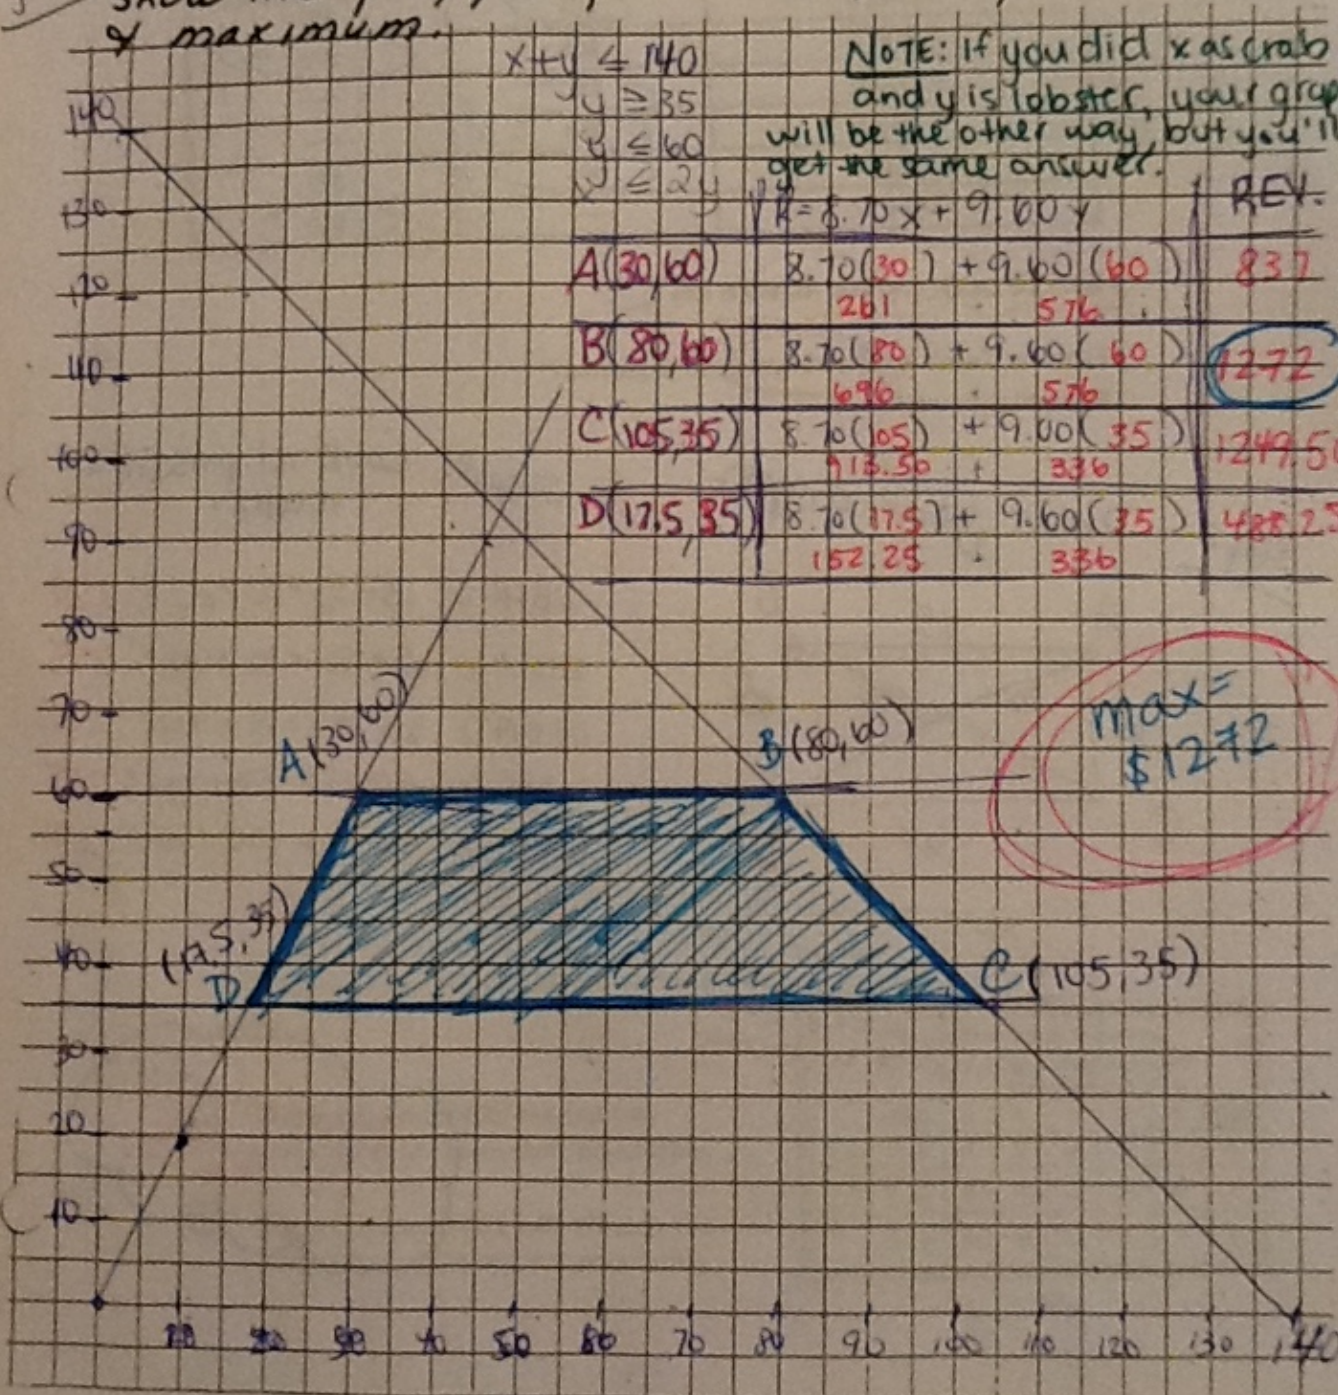 & maximum.
x+y ≤ 140
y ≥ 35
y ≤ 60
≤ 2y
NOTE: If you did x as crab
and y is lobster, your grap
will be the other way, but you'll
get the same answer.
R = 8.70x + 9.60y REV.
A(30,60) 8.70(30) + 9.60(60) 837
261 576
B(80,60) 8.70(80) + 9.60(60) 1272
696 576
C(105,35) 8.70(105) + 9.60(35) 1249.50
913.50 + 336
D(17.5,35) 8.70(17.5) + 9.60(35) 488.25
152.25 336
max=
$1272
A(30,60)
B(80,60)
(17.5,35)
D
C(105,35)
140
130
120
110
100
90
80
70
60
50
40
30
20
10
10 20 30 40 50 60 70 80 90 100 110 120 130 140